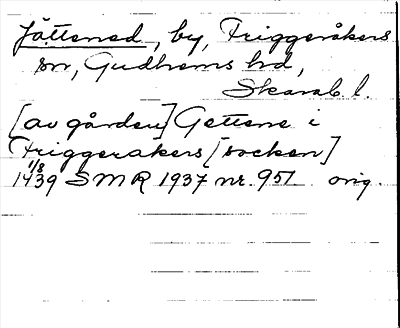 Jättened, by, Friggeråkers
sn, Gudhems hd,
Skarab. l.
[av gården] Gettene i
Friggerakers [socken]
1/8
1439 SMR 1937 nr. 951 orig.